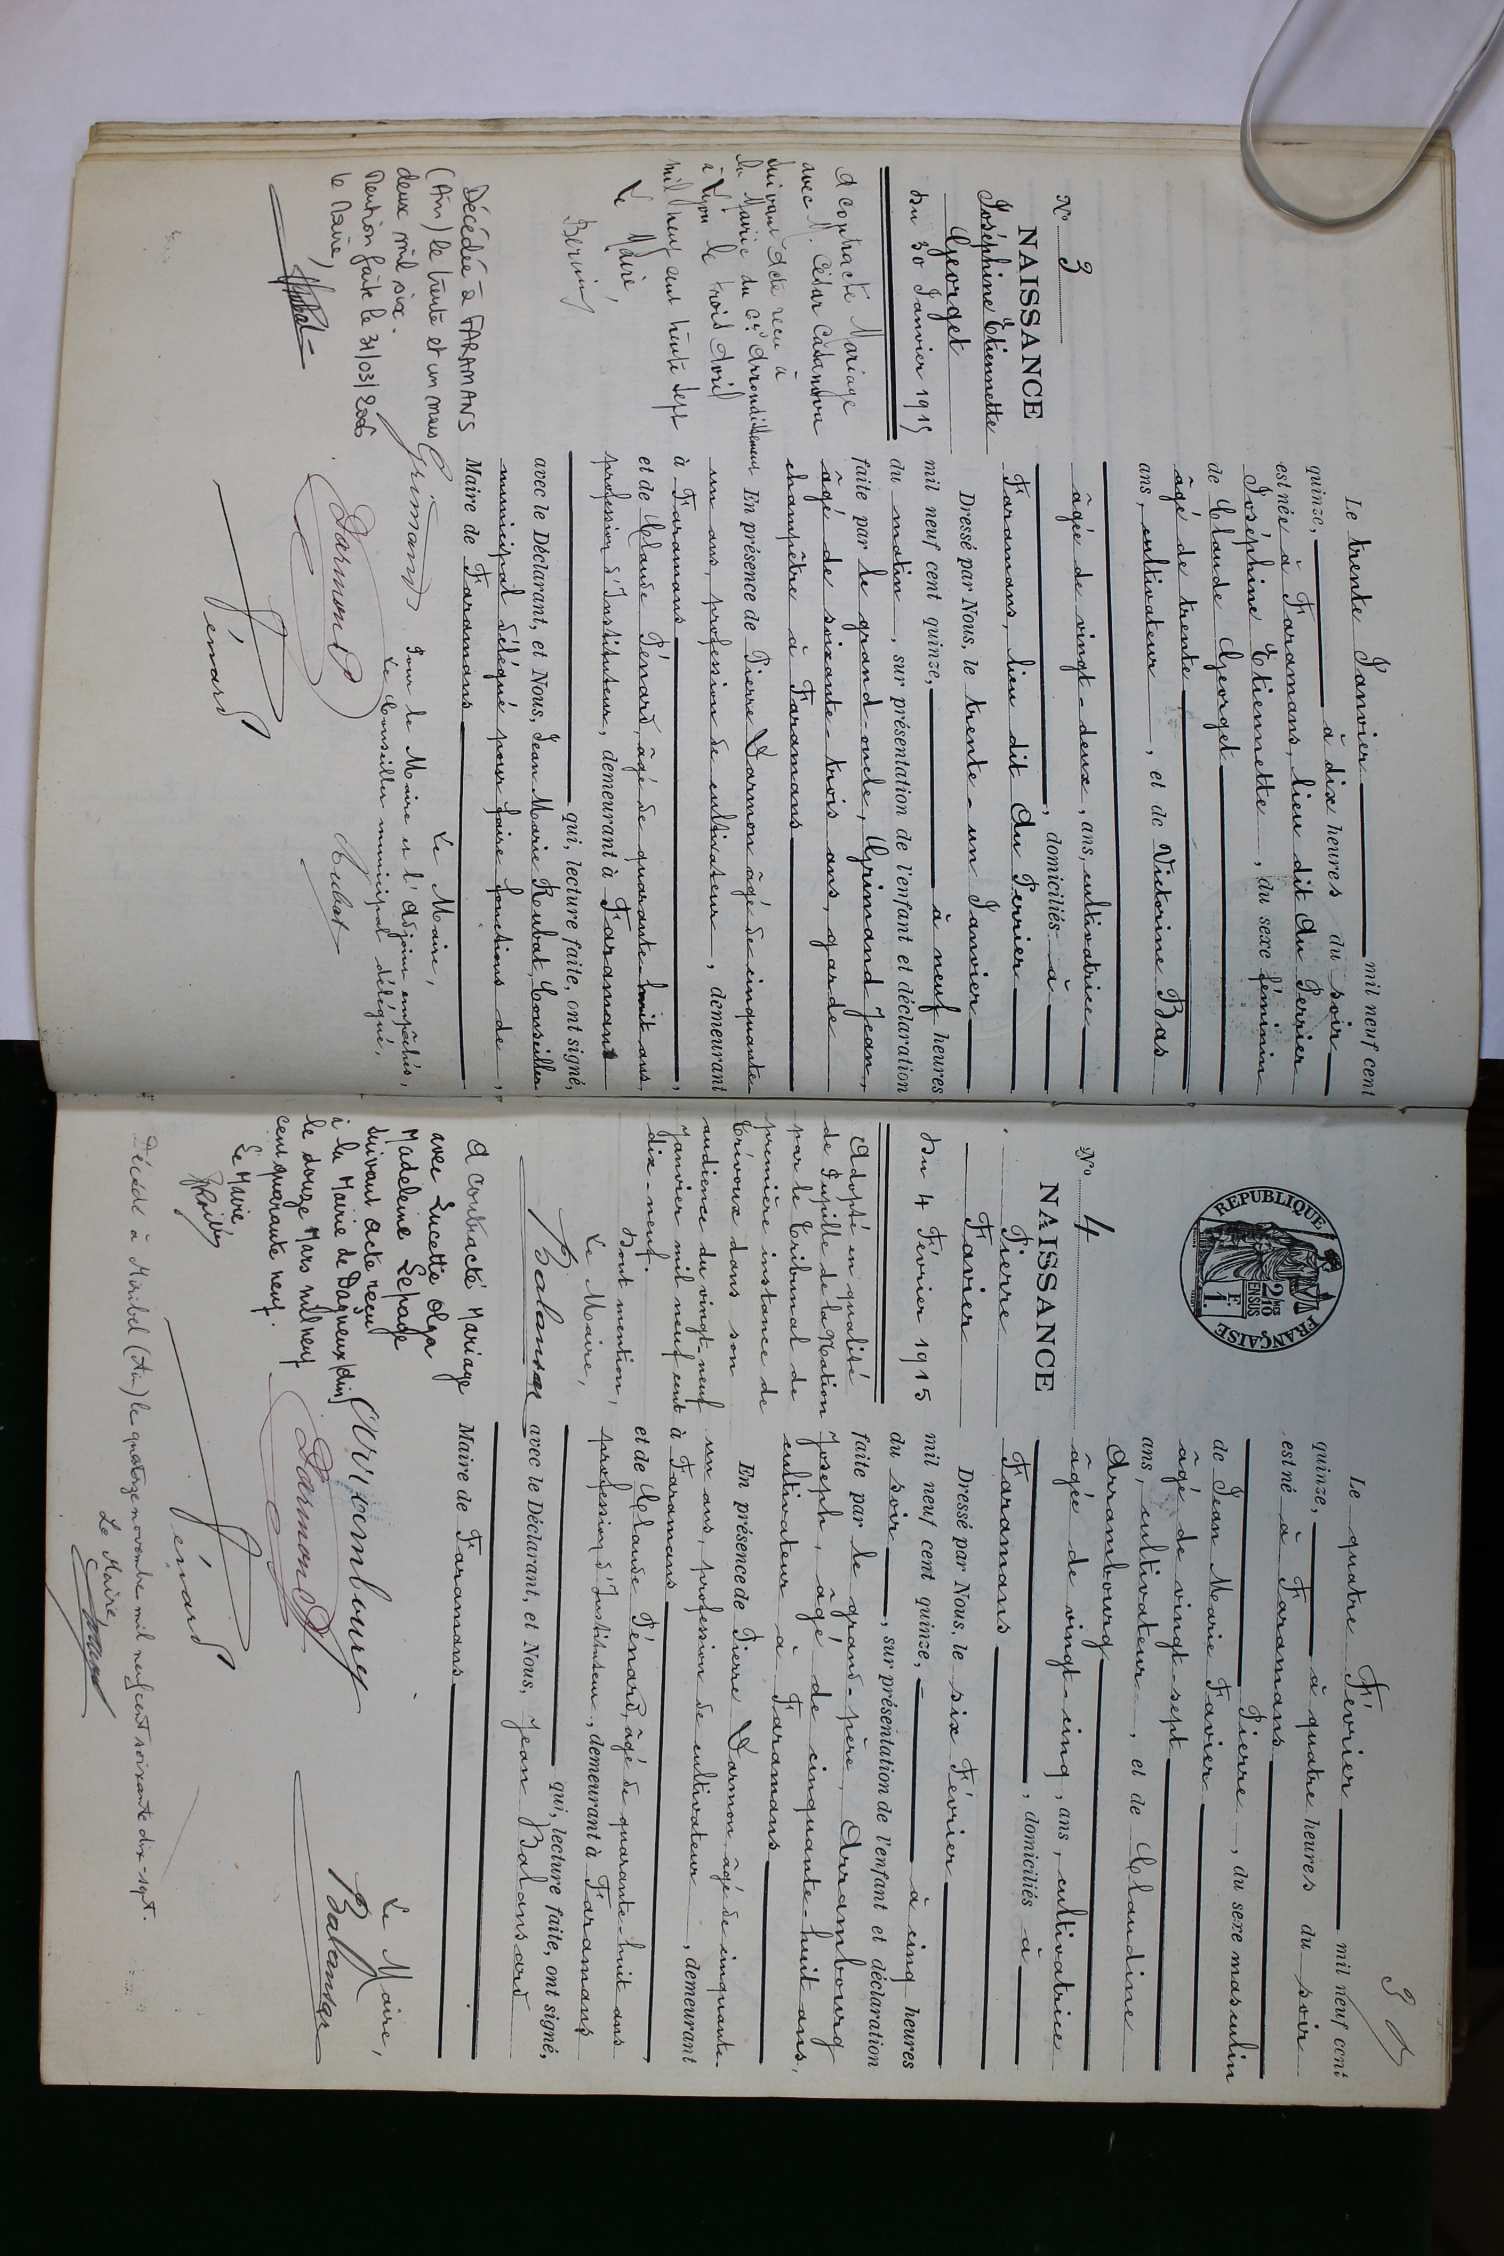 N° 3
NAISSANCE
Joséphine Etiennette
Georget
du 30 Janvier 1915
A contracté Mariage
avec M. César Casanova
suivant acte reçu à
la Mairie du arrondissement
à Lyon le trois Avril
mil neuf cent trente sept
Le Maire,
Décédée à FARAMANS
(Ain) le trente et un mars
deux mil six.
Mention faite le 31/03/2006
le Maire,
Le trente Janvier mil neuf cent
quinze, à dix heures du soir
est née à Faramans, lieu dit Au Perrier
Joséphine Etiennette, du sexe féminin
de Claude Georget
âgé de trente
ans, cultivateur, et de Victorine Bas
âgée de vingt-deux, ans, cultivatrice
, domiciliés à
Faramans, lieu dit Au Perrier
Dressé par Nous, le trente-un Janvier
mil neuf cent quinze, à neuf heures
du matin, sur présentation de l'enfant et déclaration
faite par le grand-oncle, Grimand Jean,
âgé de soixante-trois ans, garde
champêtre à Faramans
En présence de Pierre Darmon âgé de cinquante
un ans, profession de cultivateur, demeurant
à Faramans,
et de Claude Pénard, âgé de quarante-huit ans
profession d'Instituteur, demeurant à Faramans
qui, lecture faite, ont signé,
avec le Déclarant, et Nous, Jean Marie Rubat, Conseiller
municipal délégué pour faire fonctions de,
Maire de Faramans
Le Maire,
Grimand Pour le Maire et l'Adjoint empêchés,
Le Conseiller municipal délégué,
Darmon Rubat
Pénard
3
N° 4
REPUBLIQUE FRANÇAISE
2/10 EN SUS
1 F.
NAISSANCE
Pierre
Favier
du 4 Février 1915
Adopté en qualité
de Pupille de la Nation
par le Tribunal de
première instance de
Trévoux dans son
audience du vingt-neuf
Janvier mil neuf cent
dix-neuf.
Dont mention,
Le Maire,
Balansar
A contracté Mariage
avec Lucette Olga
Madeleine Lepage
suivant acte reçu
à la Mairie de Dagneux (Ain)
le douze Mars mil neuf
cent quarante neuf.
Le Maire
Le quatre Février mil neuf cent
quinze, à quatre heures du soir
est né à Faramans
Pierre, du sexe masculin
de Jean Marie Favier
âgé de vingt-sept
ans, cultivateur, et de Claudine
Arrambourg
âgée de vingt-cinq, ans, cultivatrice
, domiciliés à
Faramans
Dressé par Nous, le six Février
mil neuf cent quinze, à cinq heures
du soir, sur présentation de l'enfant et déclaration
faite par le grand-père, Arrambourg
Joseph, âgé de cinquante-huit ans,
cultivateur à Faramans
En présence de Pierre Darmon, âgé de cinquante-
un ans, profession de cultivateur, demeurant
à Faramans
et de Claude Pénard, âgé de quarante-huit ans
profession d'Instituteur, demeurant à Faramans
qui, lecture faite, ont signé,
avec le Déclarant, et Nous, Jean Balansard
Maire de Faramans
Le Maire,
Darmon Balansar
Pénard
Décédé à Miribel (Ain) le quatorze novembre mil neuf cent soixante dix-sept.
Le Maire